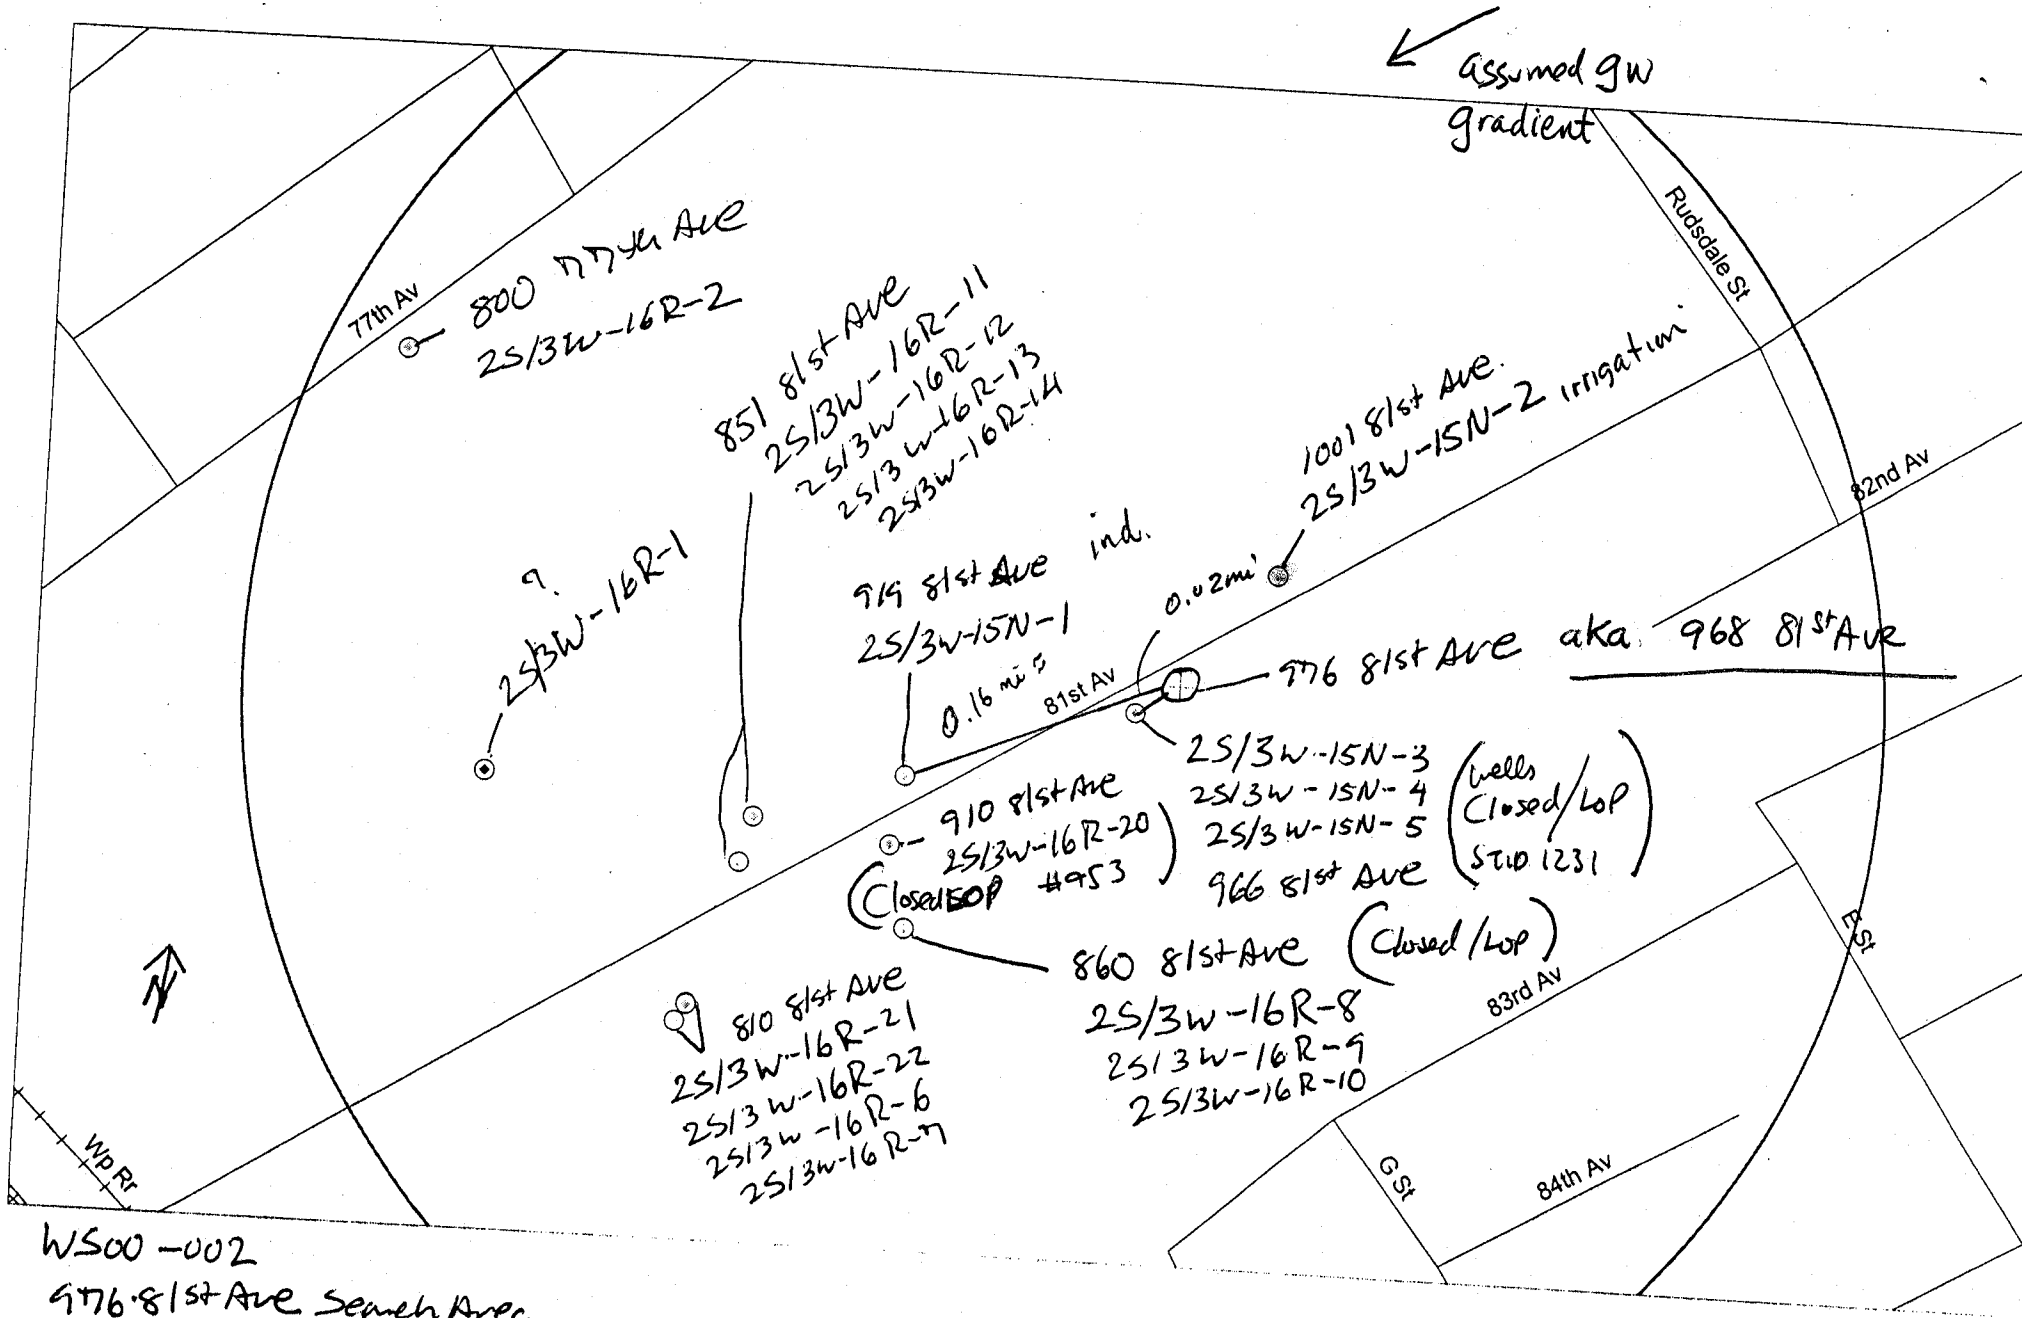 assumed gw
gradient
Rudsdale St
77th Av
800 77th Ave
2S/3W-16R-2
851 81st Ave
2S/3W-16R-11
2S/3W-16R-12
2S/3W-16R-13
2S/3W-16R-14
1001 81st Ave.
2S/3W-15N-2 irrigation
82nd Av
?
2S/3W-16R-1
919 81st Ave ind.
2S/3W-15N-1
0.16 mi s
81st Av
0.02mi
976 81st Ave aka. 968 81st Ave
2S/3W-15N-3
2S/3W-15N-4
2S/3W-15N-5
966 81st Ave
(wells
Closed/LOP
STID 1231)
910 81st Ave
2S/3W-16R-20
(Closed LOP #953)
860 81st Ave (Closed/LOP)
2S/3W-16R-8
2S/3W-16R-9
2S/3W-16R-10
83rd Av
E St
N
810 81st Ave
2S/3W-16R-21
2S/3W-16R-22
2S/3W-16R-6
2S/3W-16R-7
Wp Rr
G St
84th Av
WS00-002
976 81st Ave Search Area